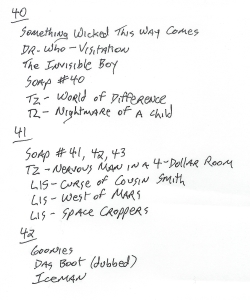 40
Something Wicked This Way Comes
DR. Who - Visitation
The Invisible Boy
Soap #40
TZ - World of Difference
TZ - Nightmare of A Child
41
Soap #41, 42, 43
TZ - Nervous Man in a 4-Dollar Room
LIS - Curse of Cousin Smith
LIS - West of Mars
LIS - Space Croppers
42
Goonies
Das Boot (dubbed)
Iceman